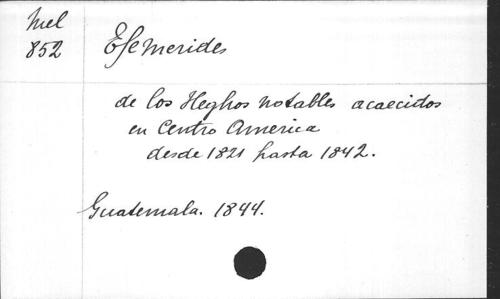 Mel
852
Efemerides
de los Heghos notables acaecidos
en Centro America
desde 1821 hasta 1842.
Guatemala. 1844.